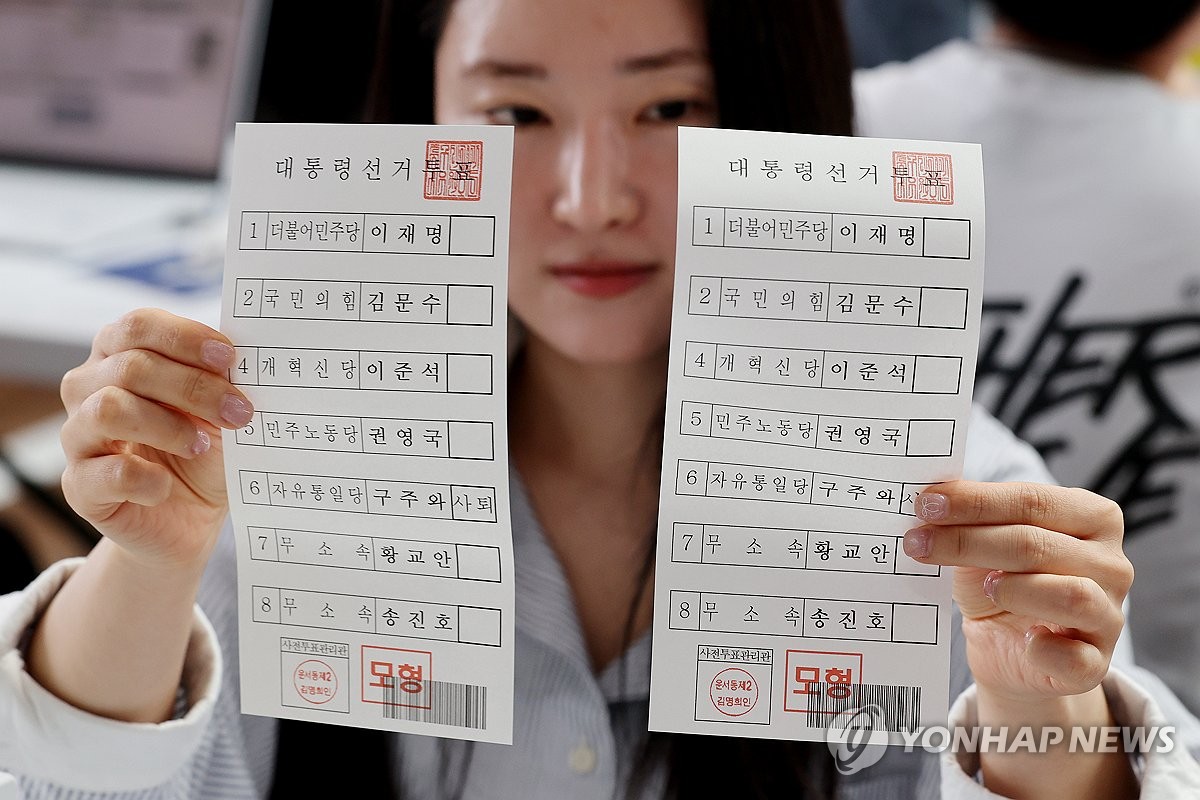 대통령선거투표
1 더불어민주당 이재명
2 국민의힘 김문수
4 개혁신당 이준석
5 민주노동당 권영국
6 자유통일당 구주와 사퇴
7 무소속 황교안
8 무소속 송진호
사전투표관리관
운서동제2
김명희인
모형
대통령선거투표
1 더불어민주당 이재명
2 국민의힘 김문수
4 개혁신당 이준석
5 민주노동당 권영국
6 자유통일당 구주와 사
7 무소속 황교안
8 무소속 송진호
사전투표관리관
운서동제2
김명희인
모형
YONHAP NEWS